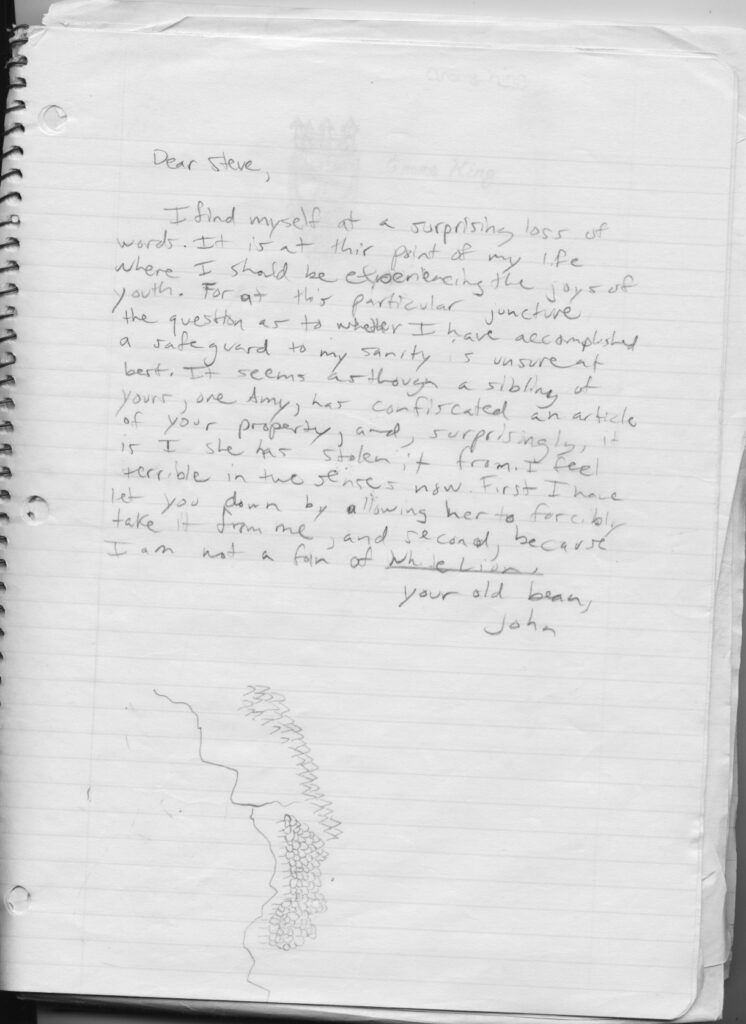 Dear Steve,
I find myself at a surprising loss of
words. It is at this point of my life
where I should be experiencing the joys of
youth. For at this particular juncture
the question as to whether I have accomplished
a safeguard to my sanity is unsure at
best. It seems as though a sibling of
yours, one Amy, has confiscated an article
of your property, and, surprisingly, it
is I she has stolen it from. I feel
terrible in two senses now. First I have
let you down by allowing her to forcibly
take it from me, and second, because
I am not a fan of White Lion.
your old bean,
John